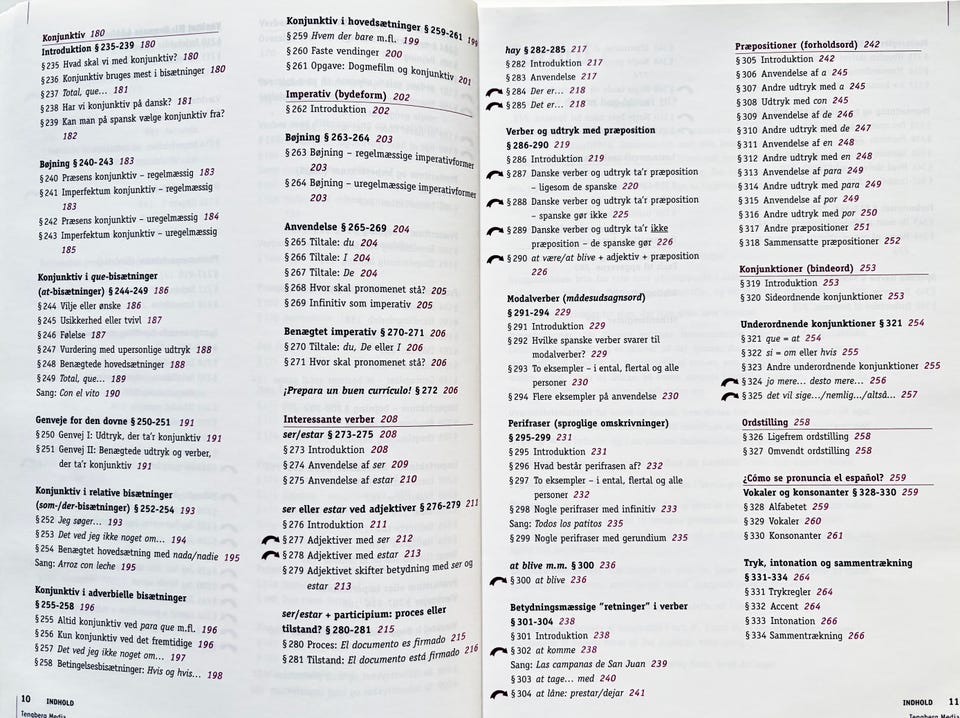 Konjunktiv 180
Introduktion § 235-239 180
§ 235 Hvad skal vi med konjunktiv? 180
§ 236 Konjunktiv bruges mest i bisætninger 180
§ 237 Total, que... 181
§ 238 Har vi konjunktiv på dansk? 181
§ 239 Kan man på spansk vælge konjunktiv fra?
182
Bøjning § 240-243 183
§ 240 Præsens konjunktiv – regelmæssig 183
§ 241 Imperfektum konjunktiv – regelmæssig
183
§ 242 Præsens konjunktiv – uregelmæssig 184
§ 243 Imperfektum konjunktiv – uregelmæssig
185
Konjunktiv i que-bisætninger
(at-bisætninger) § 244-249 186
§ 244 Vilje eller ønske 186
§ 245 Usikkerhed eller tvivl 187
§ 246 Følelse 187
§ 247 Vurdering med upersonlige udtryk 188
§ 248 Benægtede hovedsætninger 188
§ 249 Total, que... 189
Sang: Con el vito 190
Genveje for den dovne § 250-251 191
§ 250 Genvej I: Udtryk, der ta'r konjunktiv 191
§ 251 Genvej II: Benægtede udtryk og verber,
der ta'r konjunktiv 191
Konjunktiv i relative bisætninger
(som-/der-bisætninger) § 252-254 193
§ 252 Jeg søger... 193
§ 253 Det ved jeg ikke noget om... 194
§ 254 Benægtet hovedsætning med nada/nadie 195
Sang: Arroz con leche 195
Konjunktiv i adverbielle bisætninger
§ 255-258 196
§ 255 Altid konjunktiv ved para que m.fl. 196
§ 256 Kun konjunktiv ved det fremtidige 196
§ 257 Det ved jeg ikke noget om... 197
§ 258 Betingelsesbisætninger: Hvis og hvis... 198
10 INDHOLD
Tengberg Media
Konjunktiv i hovedsætninger § 259-261 199
§ 259 Hvem der bare m.fl. 199
§ 260 Faste vendinger 200
§ 261 Opgave: Dogmefilm og konjunktiv 201
Imperativ (bydeform) 202
§ 262 Introduktion 202
Bøjning § 263-264 203
§ 263 Bøjning – regelmæssige imperativformer
203
§ 264 Bøjning – uregelmæssige imperativformer
203
Anvendelse § 265-269 204
§ 265 Tiltale: du 204
§ 266 Tiltale: I 204
§ 267 Tiltale: De 204
§ 268 Hvor skal pronomenet stå? 205
§ 269 Infinitiv som imperativ 205
Benægtet imperativ § 270-271 206
§ 270 Tiltale: du, De eller I 206
§ 271 Hvor skal pronomenet stå? 206
¡Prepara un buen currículo! § 272 206
Interessante verber 208
ser/estar § 273-275 208
§ 273 Introduktion 208
§ 274 Anvendelse af ser 209
§ 275 Anvendelse af estar 210
ser eller estar ved adjektiver § 276-279 211
§ 276 Introduktion 211
§ 277 Adjektiver med ser 212
§ 278 Adjektiver med estar 213
§ 279 Adjektivet skifter betydning med ser og
estar 213
ser/estar + participium: proces eller
tilstand? § 280-281 215
§ 280 Proces: El documento es firmado 215
§ 281 Tilstand: El documento está firmado 216
hay § 282-285 217
§ 282 Introduktion 217
§ 283 Anvendelse 217
§ 284 Der er... 218
§ 285 Det er... 218
Verber og udtryk med præposition
§ 286-290 219
§ 286 Introduktion 219
§ 287 Danske verber og udtryk ta'r præposition
– ligesom de spanske 220
§ 288 Danske verber og udtryk ta'r præposition
– spanske gør ikke 225
§ 289 Danske verber og udtryk ta'r ikke
præposition – de spanske gør 226
§ 290 at være/at blive + adjektiv + præposition
226
Modalverber (mådesudsagnsord)
§ 291-294 229
§ 291 Introduktion 229
§ 292 Hvilke spanske verber svarer til
modalverber? 229
§ 293 To eksempler – i ental, flertal og alle
personer 230
§ 294 Flere eksempler på anvendelse 230
Perifraser (sproglige omskrivninger)
§ 295-299 231
§ 295 Introduktion 231
§ 296 Hvad består perifrasen af? 232
§ 297 To eksempler – i ental, flertal og alle
personer 232
§ 298 Nogle perifraser med infinitiv 233
Sang: Todos los patitos 235
§ 299 Nogle perifraser med gerundium 235
at blive m.m. § 300 236
§ 300 at blive 236
Betydningsmæssige "retninger" i verber
§ 301-304 238
§ 301 Introduktion 238
§ 302 at komme 238
Sang: Las campanas de San Juan 239
§ 303 at tage... med 240
§ 304 at låne: prestar/dejar 241
Præpositioner (forholdsord) 242
§ 305 Introduktion 242
§ 306 Anvendelse af a 245
§ 307 Andre udtryk med a 245
§ 308 Udtryk med con 245
§ 309 Anvendelse af de 246
§ 310 Andre udtryk med de 247
§ 311 Anvendelse af en 248
§ 312 Andre udtryk med en 248
§ 313 Anvendelse af para 249
§ 314 Andre udtryk med para 249
§ 315 Anvendelse af por 249
§ 316 Andre udtryk med por 250
§ 317 Andre præpositioner 251
§ 318 Sammensatte præpositioner 252
Konjunktioner (bindeord) 253
§ 319 Introduktion 253
§ 320 Sideordnende konjunktioner 253
Underordnende konjunktioner § 321 254
§ 321 que = at 254
§ 322 si = om eller hvis 255
§ 323 Andre underordnende konjunktioner 255
§ 324 jo mere... desto mere... 256
§ 325 det vil sige.../nemlig.../altså... 257
Ordstilling 258
§ 326 Ligefrem ordstilling 258
§ 327 Omvendt ordstilling 258
¿Cómo se pronuncia el español? 259
Vokaler og konsonanter § 328-330 259
§ 328 Alfabetet 259
§ 329 Vokaler 260
§ 330 Konsonanter 261
Tryk, intonation og sammentrækning
§ 331-334 264
§ 331 Trykregler 264
§ 332 Accent 264
§ 333 Intonation 266
§ 334 Sammentrækning 266
INDHOLD 11
Tengberg Media